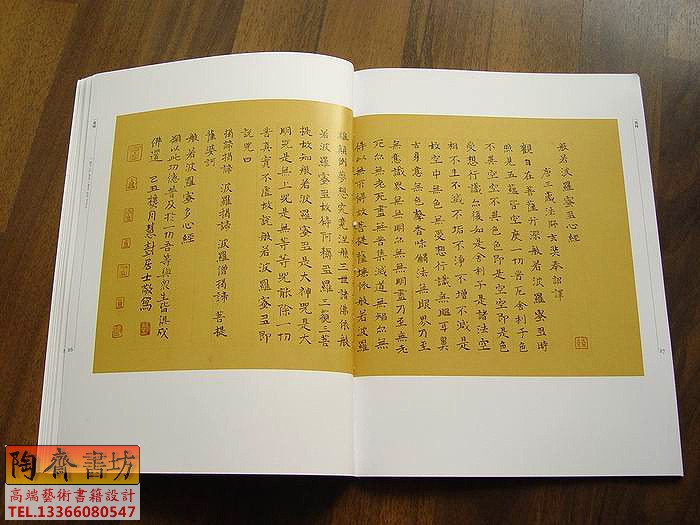 般若波羅蜜多心經
唐三藏法師玄奘奉詔譯
觀自在菩薩行深般若波羅蜜多時
照見五蘊皆空度一切苦厄舍利子色
不異空空不異色色即是空空即是色
受想行識亦復如是舍利子是諸法空
相不生不滅不垢不淨不增不減是
故空中無色無受想行識無眼耳鼻
舌身意無色聲香味觸法無眼界乃至
無意識界無無明亦無無明盡乃至無老
死亦無老死盡無苦集滅道無智亦無
得以無所得故菩提薩埵依般若波羅
離顛倒夢想究竟涅槃三世諸佛依般
若波羅蜜多故得阿耨多羅三藐三菩
提故知般若波羅蜜多是大神咒是大
明咒是無上咒是無等等咒能除一切
苦真實不虛故說般若波羅蜜多咒即
說咒曰
揭諦揭諦 波羅揭諦 波羅僧揭諦 菩提
薩婆訶
般若波羅蜜多心經
願以此功德普及於一切吾等與眾生皆俱成
佛道 己丑 月慧彭居士敬寫
26
27
陶齋書坊
高端藝術書籍設計
TEL.13366080547